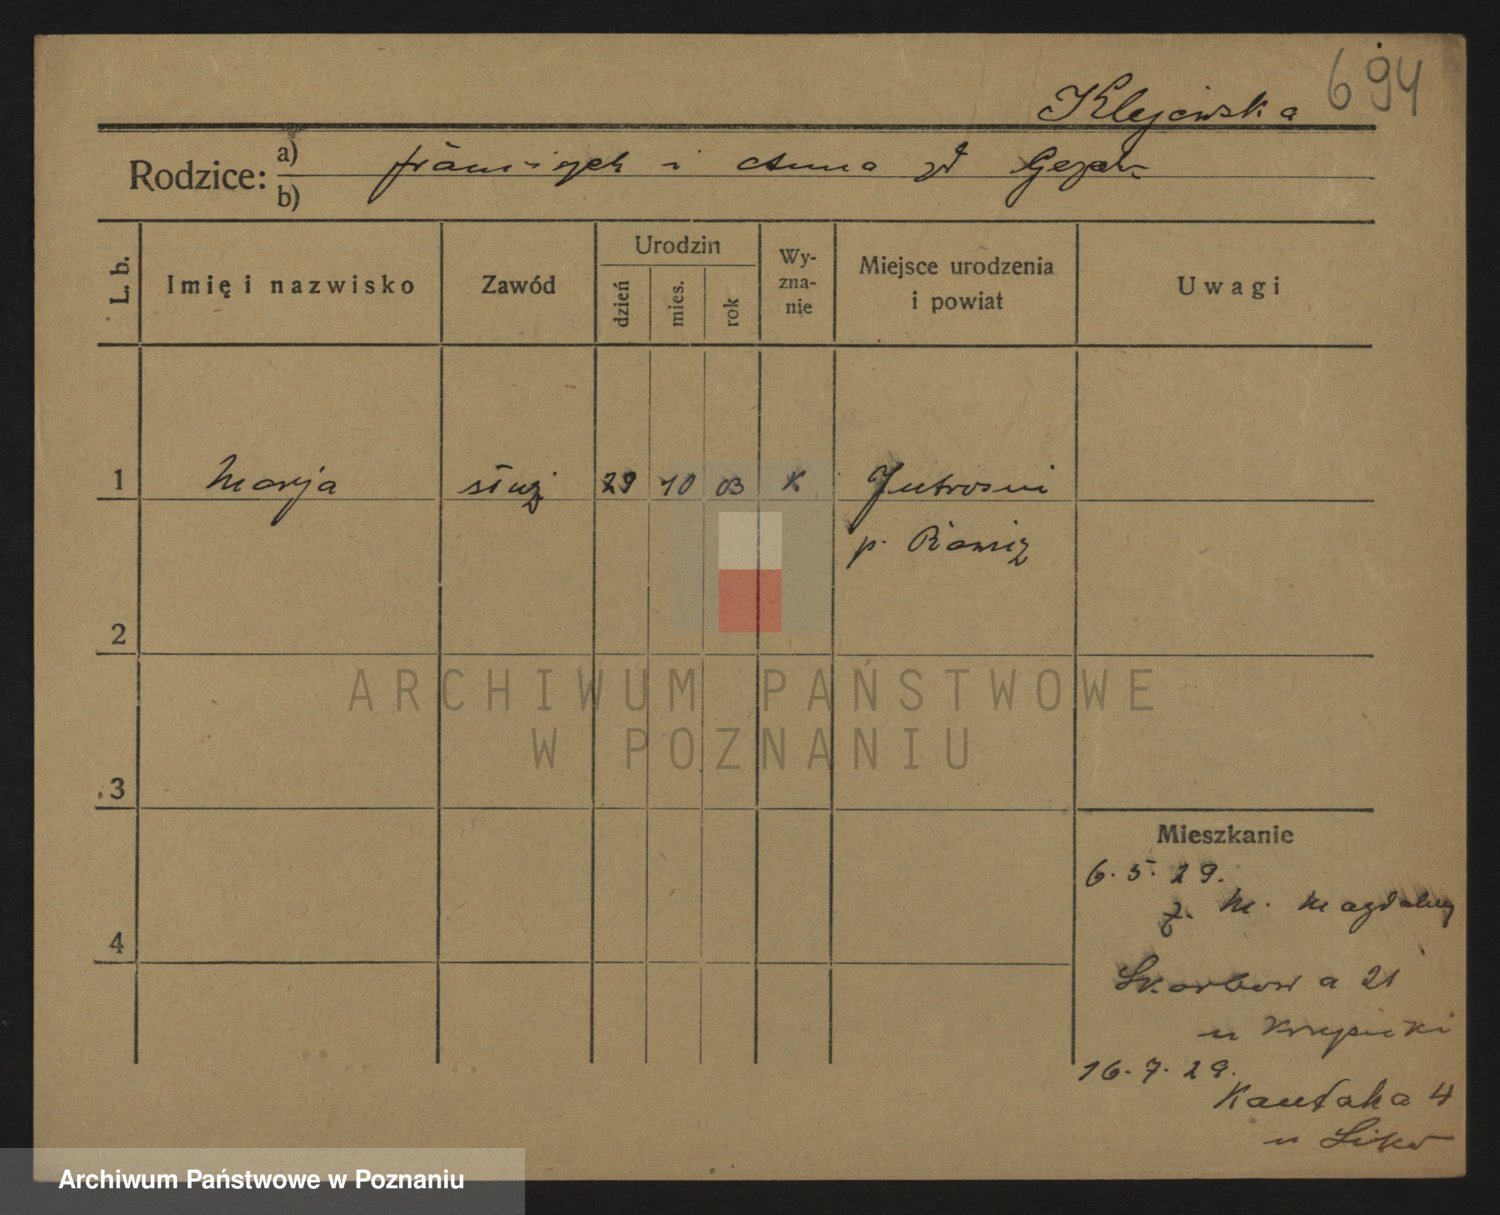 694
Klejewska
Rodzice: a) franciszek i Anna zd
b)
L. b.
Imię i nazwisko
Zawód
Urodzin
dzień
mies.
rok
Wy-
zna-
nie
Miejsce urodzenia
i powiat
Uwagi
1 Marja służ 29 10 03 K Jutrosin
p. Rawicz
2
3
4
ARCHIWUM PAŃSTWOWE
W POZNANIU
Mieszkanie
6. 5. 29.
z. M. Magdaleny
Skarbowa 21
u Krupicki
16. 7. 29.
Kantaka 4
u
Archiwum Państwowe w Poznaniu